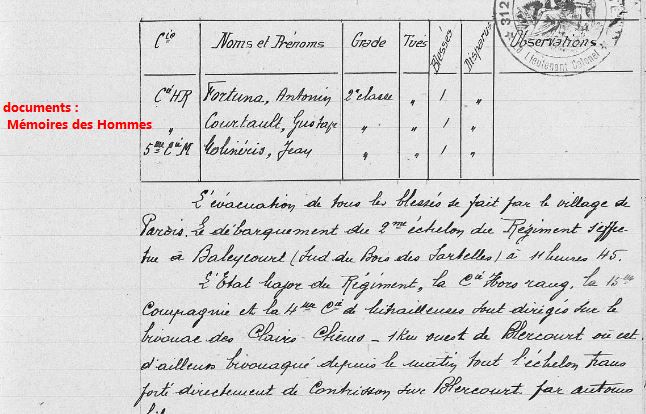 312
Lieutenant Colonel
Cie Noms et Prénoms Grade Tués Blessés Disparus Observations
documents :
Mémoires des Hommes
Cie HR Fortuna, Antonin 2e classe " 1 "
" Courtault, Gustave " " 1 "
5me Cie M Molinéris, Jean " " 1 "
L'évacuation de tous les blessés se fait par le village de
Parois. Le débarquement du 2me échelon du Régiment s'effec
tue à Baleycourt (Sud du Bois des Sartelles) à 11 heures 45.
L'Etat Major du Régiment, la Cie Hors rang, la 15me
Compagnie et la 4me Cie de Mitrailleuses sont dirigés sur le
bivouac des Clairs Chênes - 1 Km ouest de Blercourt où est
d'ailleurs bivouaqué depuis le matin tout l'échelon trans
porté directement de Contrisson sur Blercourt par automo